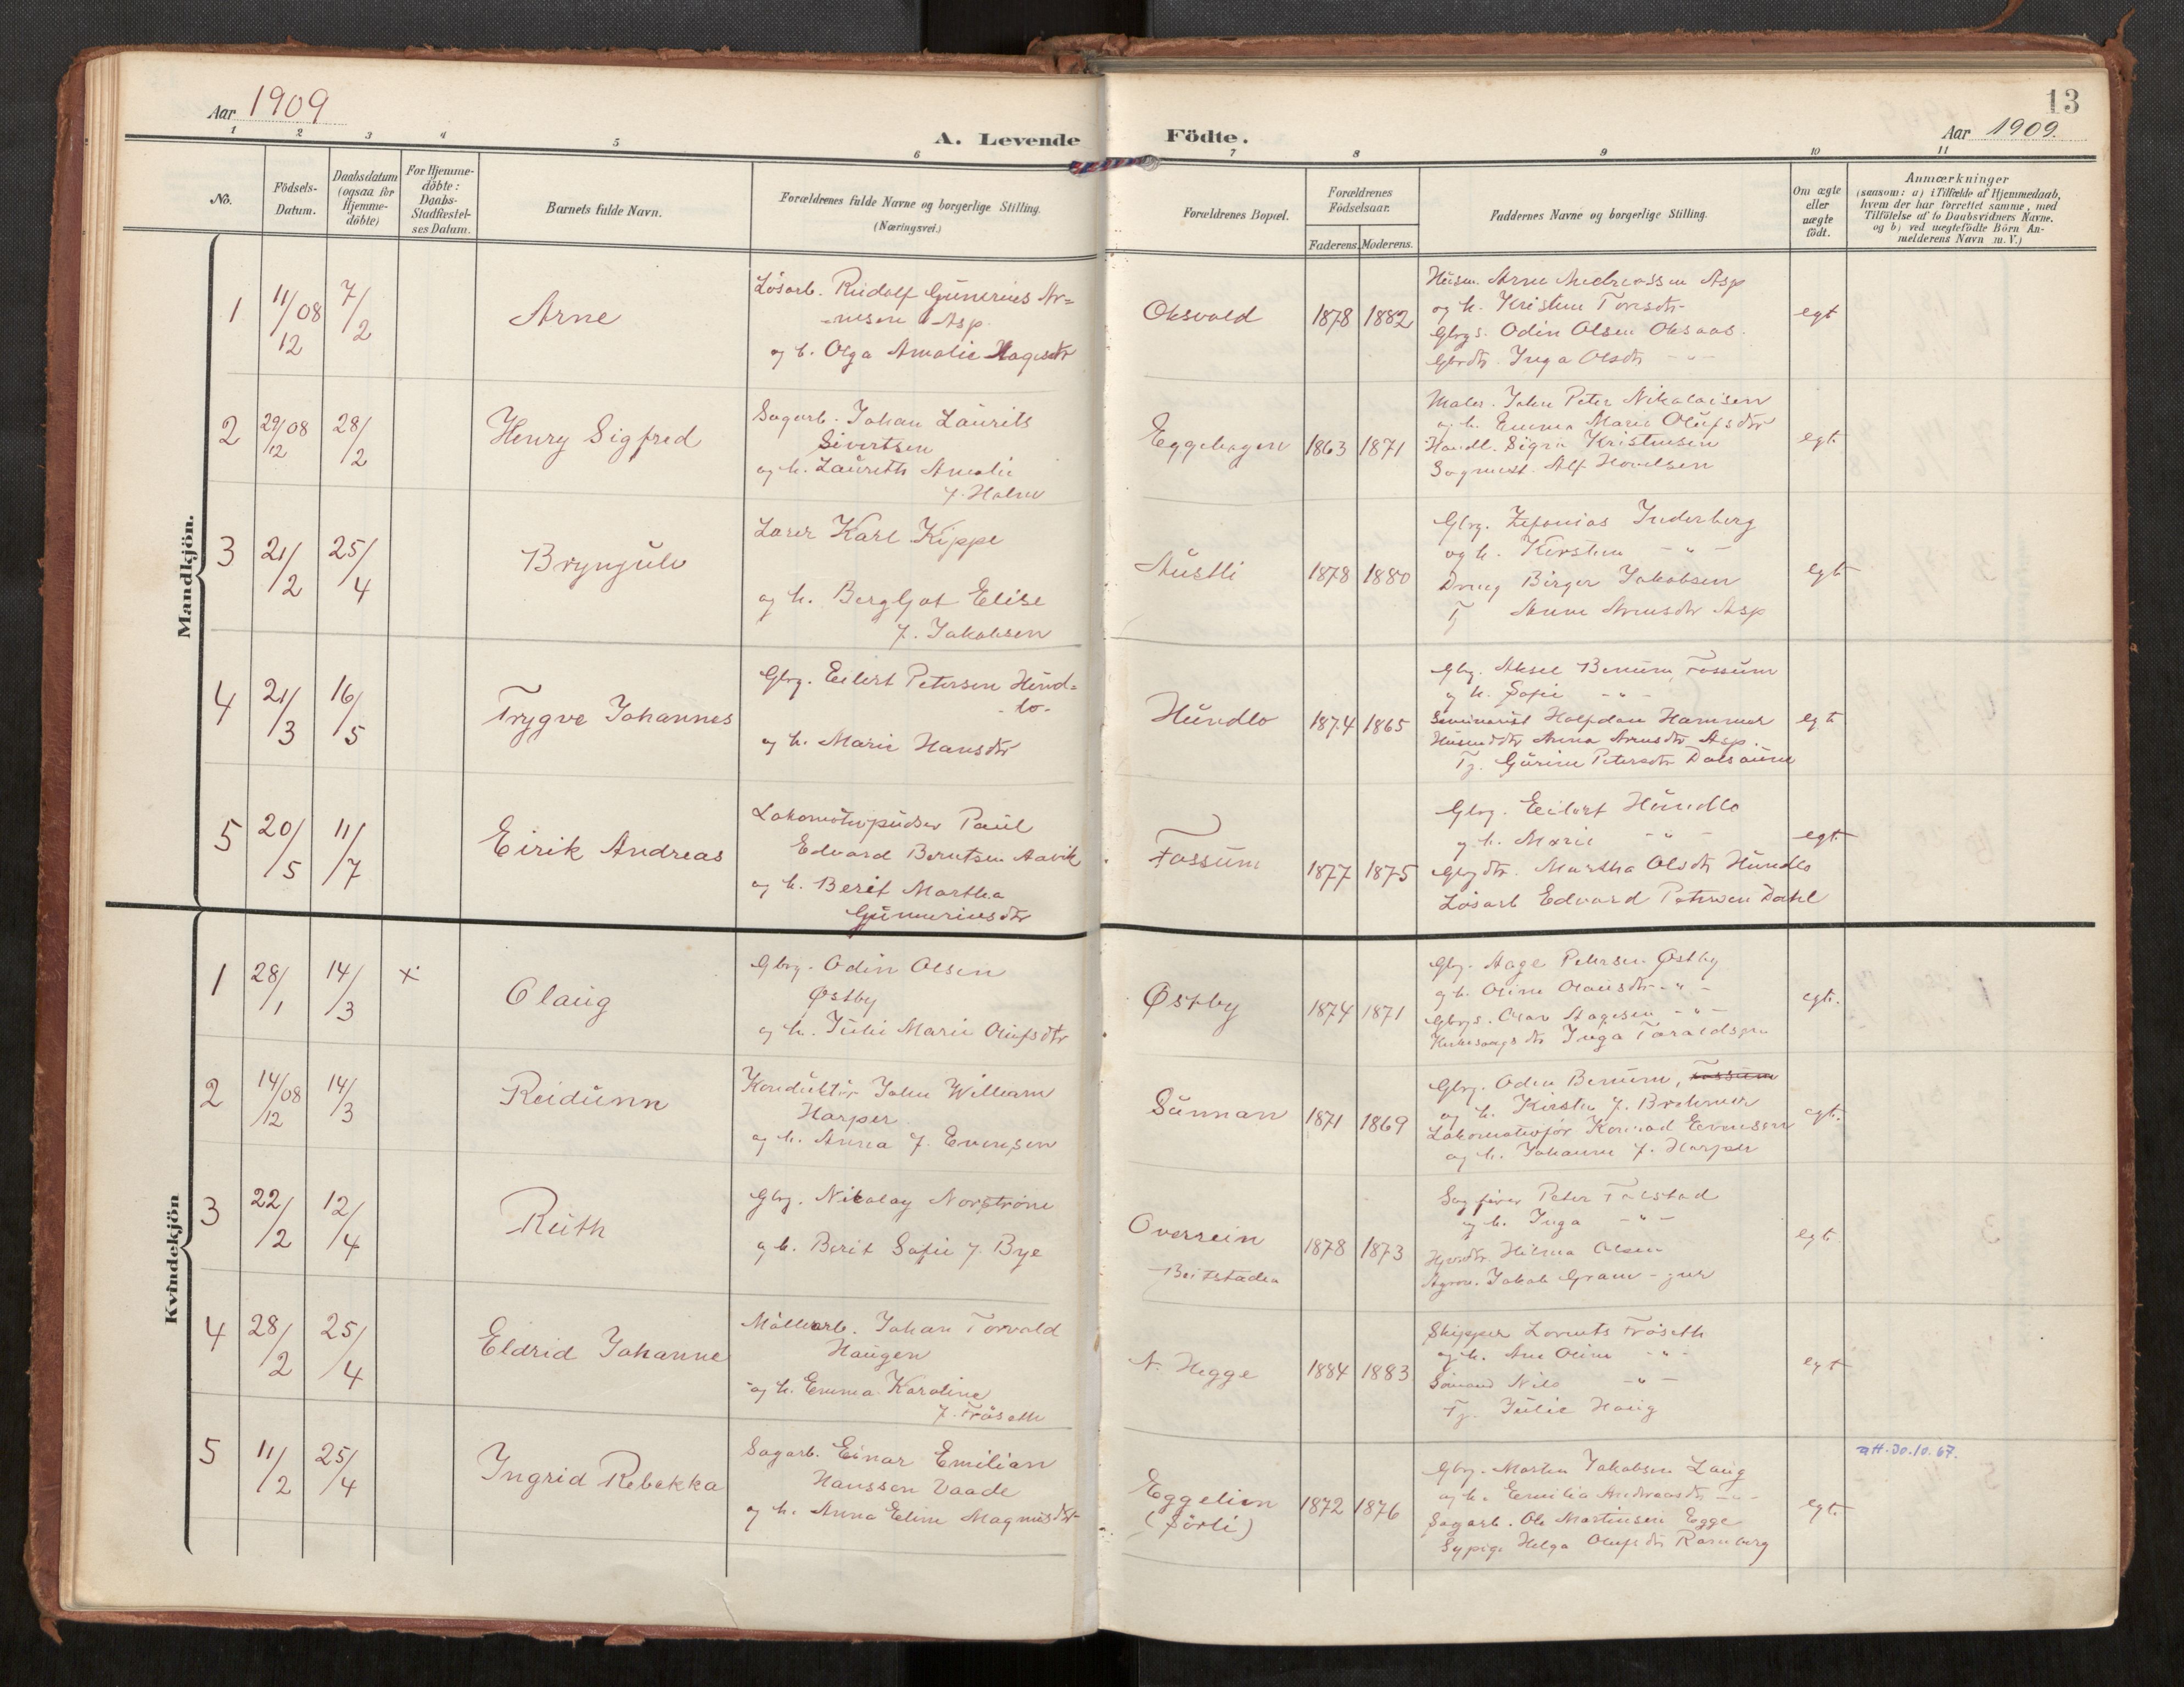 13
Aar 1909
A. Levende Födte.
Aar 1909.
1 2 3 4 5 6 7 8 9 10 11
No.
Födsels-
Datum.
Daabsdatum
(ogsaa for
Hjemme-
döbte)
For Hjemme-
döbte:
Daabs-
Stadfæstel-
ses Datum.
Barnets fulde Navn.
Forældrenes fulde Navne og borgerlige Stilling.
(Næringsvei.)
Forældrenes Bopæl.
Forældrenes
Födselsaar.
Faderens. Moderens.
Faddernes Navne og borgerlige Stilling.
Om ægte
eller
uægte
födt.
Anmærkninger
(saasom: a) i Tilfælde af Hjemmedaab,
hvem der har forrettet samme, med
Tilföielse af to Daabsvidners Navne.
og b) ved uægtefödte Börn An-
melderens Navn m. V.)
Mandkjön.
1 11/12 08 7/2 Arne
Løsarb. Rudolf Gunerius Ar-
nesen Asp.
og h. Olga Amalie
Oksvold 1878 1882
Husm. Arne Andreassen Asp
og h. Kristine Toresdtr
Gbrgs. Odin Olsen Oksaas.
Gbrdtr. Inga Olsdtr -"-
egt
2 29/12 08 28/2 Henry Sigfred
Sagarb. Johan Laurits
Sivertsen
og h. Laurith Amalie
f. Holm
Eggehagen 1863 1871
Maler. John Peter Nikolaisen
og h. Emma Marie Olufsdtr
Handl. Sigrin Kristensen
Sagmest. Alf
egt.
3 21/2 25/4 Brynjulv
Lærer Karl Kippe
og h. Bergljot Elise
f. Jakobsen
Austli 1878 1880
Gbrg. Zefanias Inderberg
og h. Kirsten -"-
Dreng Birger Jakobsen
Tj Anne Arnesdtr Asp
egt
4 21/3 16/5 Trygve Johannes
Gbrg. Eilert Petersen Hund-
lo.
og h. Marie Hansdtr
Hundlo 1874 1865
Gbrg. Aksel Benum, Fossum
og h. Sofie -"-
Seminarist Halfdan Hammer
Husmdtr Anna Arnesdtr Asp.
Tj. Gurine Petersdtr Dalsaune
egt
5 20/5 11/7 Eirik Andreas
Lokomotivpudser Paul
Edvard Berntsen Aavik
og h. Berit Martha
Gunneriusdtr
Fossum 1877 1875
Gbrg. Eilert Hundlo
og h. Marie -"-
Gbrgdtr. Martha Olsdtr Hundlo
Løsarb Edvard Petersen Dahl
egt.
Kvindekjön
1 28/1 14/3 × Olaug
Gbrg. Odin Olsen
Østby
og h. Julie Marie Olufsdtr
Østby 1874 1871
Gbrg. Aage Petersen Østby
og h. Oline Olausdtr -"-
Gbrgs. Olav Aagesen -"-
Kirkesangsdtr Inga
egt.
2 14/12 08 14/3 Reidunn
Konduktør John William
Harper
og h. Anna f. Evensen
Sunnan 1871 1869
Gbrg. Oden Benum, Fossum
og h. Kirsten f. Brehmer
Lokomotivfør Konrad Evensen
og h. Johanne f. Harper
egt.
3 22/2 12/4 Ruth
Gbrg. Nikolay Norstrøm
og h. Berit Sofie f. Bye
Overrein
Beitstaden 1878 1873
Peter
og h. Inga -"-
Hilma Olsen
Agron. Jakob Gram
egt.
4 28/2 25/4 Eldrid Johanne
Møllearb. Johan Torvald
Haugen
og h. Emma Karoline
f. Frøseth
N. Hegge 1884 1883
Skipper Lorents Frøseth
og h. Ane Oline -"-
Sømand Nils -"-
Tj. Julie Haug
egt
5 11/2 25/4 Ingrid Rebekka
Sagarb. Einar Emilian
Hanssen Vaade
og h. Anna Eline Magnusdtr
Eggelien
(Sørli) 1872 1876
Gbrg. Martin Jakobsen Laug
og h. Emilia Andreasdtr -"-
Sagarb. Ole Martinsen Egge
Sypige Helga Olufsdtr
egt.
att. 30.10.67.